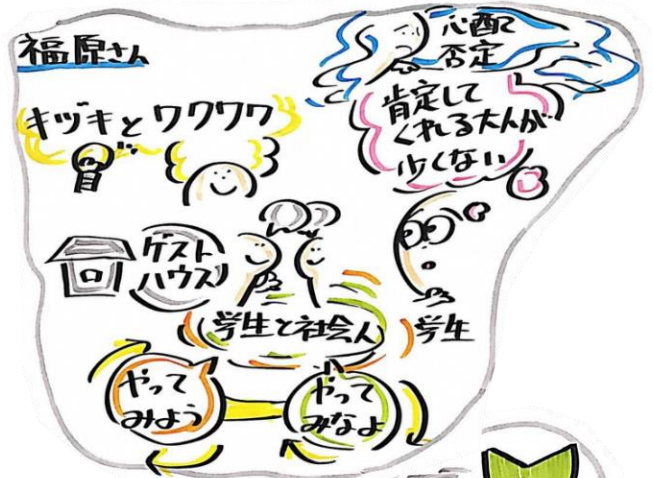 福原さん
心配で
否定
肯定して
くれる大人が
少くない
キヅキとワクワク
ゲスト
ハウス
学生と社会人
学生
やって
みよう
やって
みなよ